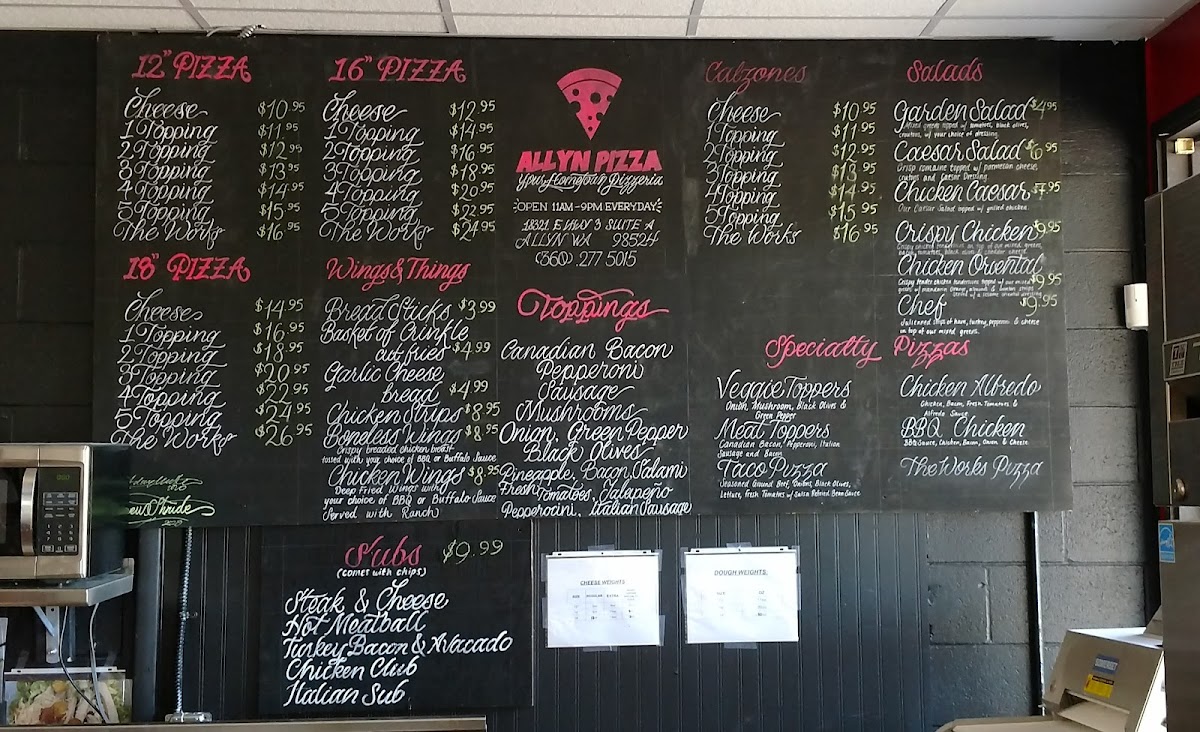 12" PIZZA
Cheese $10.95
1 Topping $11.95
2 Topping $12.95
3 Topping $13.95
4 Topping $14.95
5 Topping $15.95
The Works $16.95
16" PIZZA
Cheese $12.95
1 Topping $14.95
2 Topping $16.95
3 Topping $18.95
4 Topping $20.95
5 Topping $22.95
The Works $24.95
18" PIZZA
Cheese $14.95
1 Topping $16.95
2 Topping $18.95
3 Topping $20.95
4 Topping $22.95
5 Topping $24.95
The Works $26.95
Wings & Things
Bread Sticks $3.99
Basket of Crinkle
cut fries $4.99
Garlic Cheese
bread $4.99
Chicken Strips $8.95
Boneless Wings $8.95
Crispy breaded chicken breast
tossed with your choice of BBQ or Buffalo Sauce
Chicken Wings $8.95
Deep Fried Wings with
your choice of BBQ or Buffalo Sauce
Served with Ranch
ALLYN PIZZA
Your Hometown Pizzeria
OPEN 11AM-9PM EVERYDAY
18321 E HWY 3 SUITE A
ALLYN WA 98524
(360).277 5015
Toppings
Canadian Bacon
Pepperoni
Sausage
Mushrooms
Onion, Green Pepper
Black Olives
Pineapple, Bacon, Salami
Fresh Tomatoes, Jalepeño
Pepperocini, Italian Sausage
Calzones
Cheese $10.95
1 Topping $11.95
2 Topping $12.95
3 Topping $13.95
4 Topping $14.95
5 Topping $15.95
The Works $16.95
Salads
Garden Salad $4.95
Mixed greens topped w/ tomatoes, black olives,
croutons, w/ your choice of dressing.
Caesar Salad $6.95
Crisp romaine topped w/ parmesan cheese
and Caesar Dressing
Chicken Caesar $7.95
Our Caesar Salad topped w/ grilled chicken.
Crispy Chicken $9.95
Crispy chicken on top of our mixed greens,
tomatoes, black olives & cheddar cheese
Chicken Oriental $9.95
Crispy tender chicken tenderloins topped w/ our mixed
greens w/ mandarin orange, almonds &
Served w/ a sesame oriental dressing
Chef $9.95
Julienned strips of ham, turkey, pepperoni & cheese
on top of our mixed greens.
Specialty Pizzas
Veggie Toppers
Onion, Mushroom, Black Olives &
Green Pepper
Meat Toppers
Canadian Bacon, Pepperoni, Italian
Sausage and Bacon
Taco Pizza
Seasoned Ground Beef, Onions, Black Olives,
Lettuce, fresh Tomatoes w/ Salsa Refried Bean Sauce
Chicken Alfredo
Chicken, Bacon, Fresh Tomatoes &
Alfredo Sauce
BBQ Chicken
BBQ Sauce, Chicken, Bacon, Onion & Cheese
The Works Pizza
Subs $9.99
(comes with chips)
Steak & Cheese
Hot Meatball
Turkey Bacon & Avacado
Chicken Club
Italian Sub
CHEESE WEIGHTS
DOUGH WEIGHTS